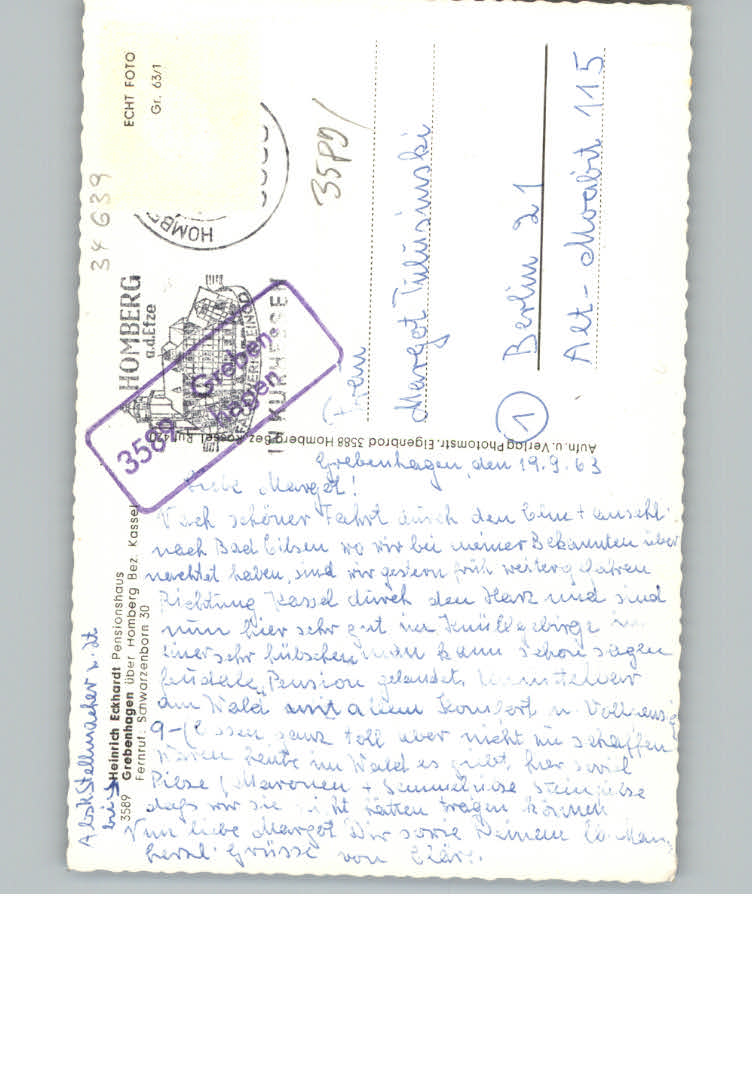 ECHT FOTO
Gr. 63/1
34 639
HOMBERG
a.d.Efze
IN KURHESSEN
3589 Greben-
hagen
3589/
Frau
Margot
Berlin 21
Alt-Moabit 115
1
Aufn. u. Verlag Photomstr. Eigenbrod 3588 Homberg Bez. Kassel, Ruf 420
Heinrich Eckhardt Pensionshaus
3589 Grebenhagen über Homberg Bez. Kassel
Fernruf: Schwarzenborn 30
Absk Stellmacher z. Zt.
bei
Grebenhagen, den 19.9.63
Liebe Margot!
Nach schöner Fahrt durch den + anschl.
nach Bad Eilsen wo wir bei meiner Bekannten über
nachtet haben, sind wir gestern früh weitergefahren
Richtung Kassel durch den Harz und sind
nun hier sehr gut im Knüllgebirge in
einer sehr hübschen, man kann schon sagen
feudale, Pension gelandet.
am Wald mit allem Komfort u.
9.- (Essen ganz toll aber nicht zu schaffen
Waren heute im Wald es gibt hier soviel
Pilze (Maronen + Steinpilze
dass wir sie nicht hätten tragen können
Nun liebe Margot Dir sowie Deinem lb. Mann
herzl. Grüsse von